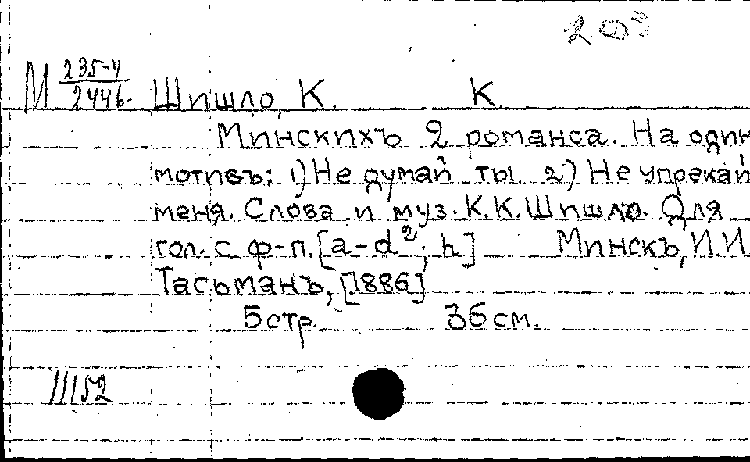 203
М 235-4/2446. Шишло, К. К.
Минскихъ 2 романса. На один
мотивъ: 1) Не думай ты 2) Не упрекай
меня. Слова и муз. К.К. Шишло. Для
гол. с ф-п. [a-d²; h] Минскъ, И.И.
Тасьманъ, [1886]
5 стр. 36 см.
11152